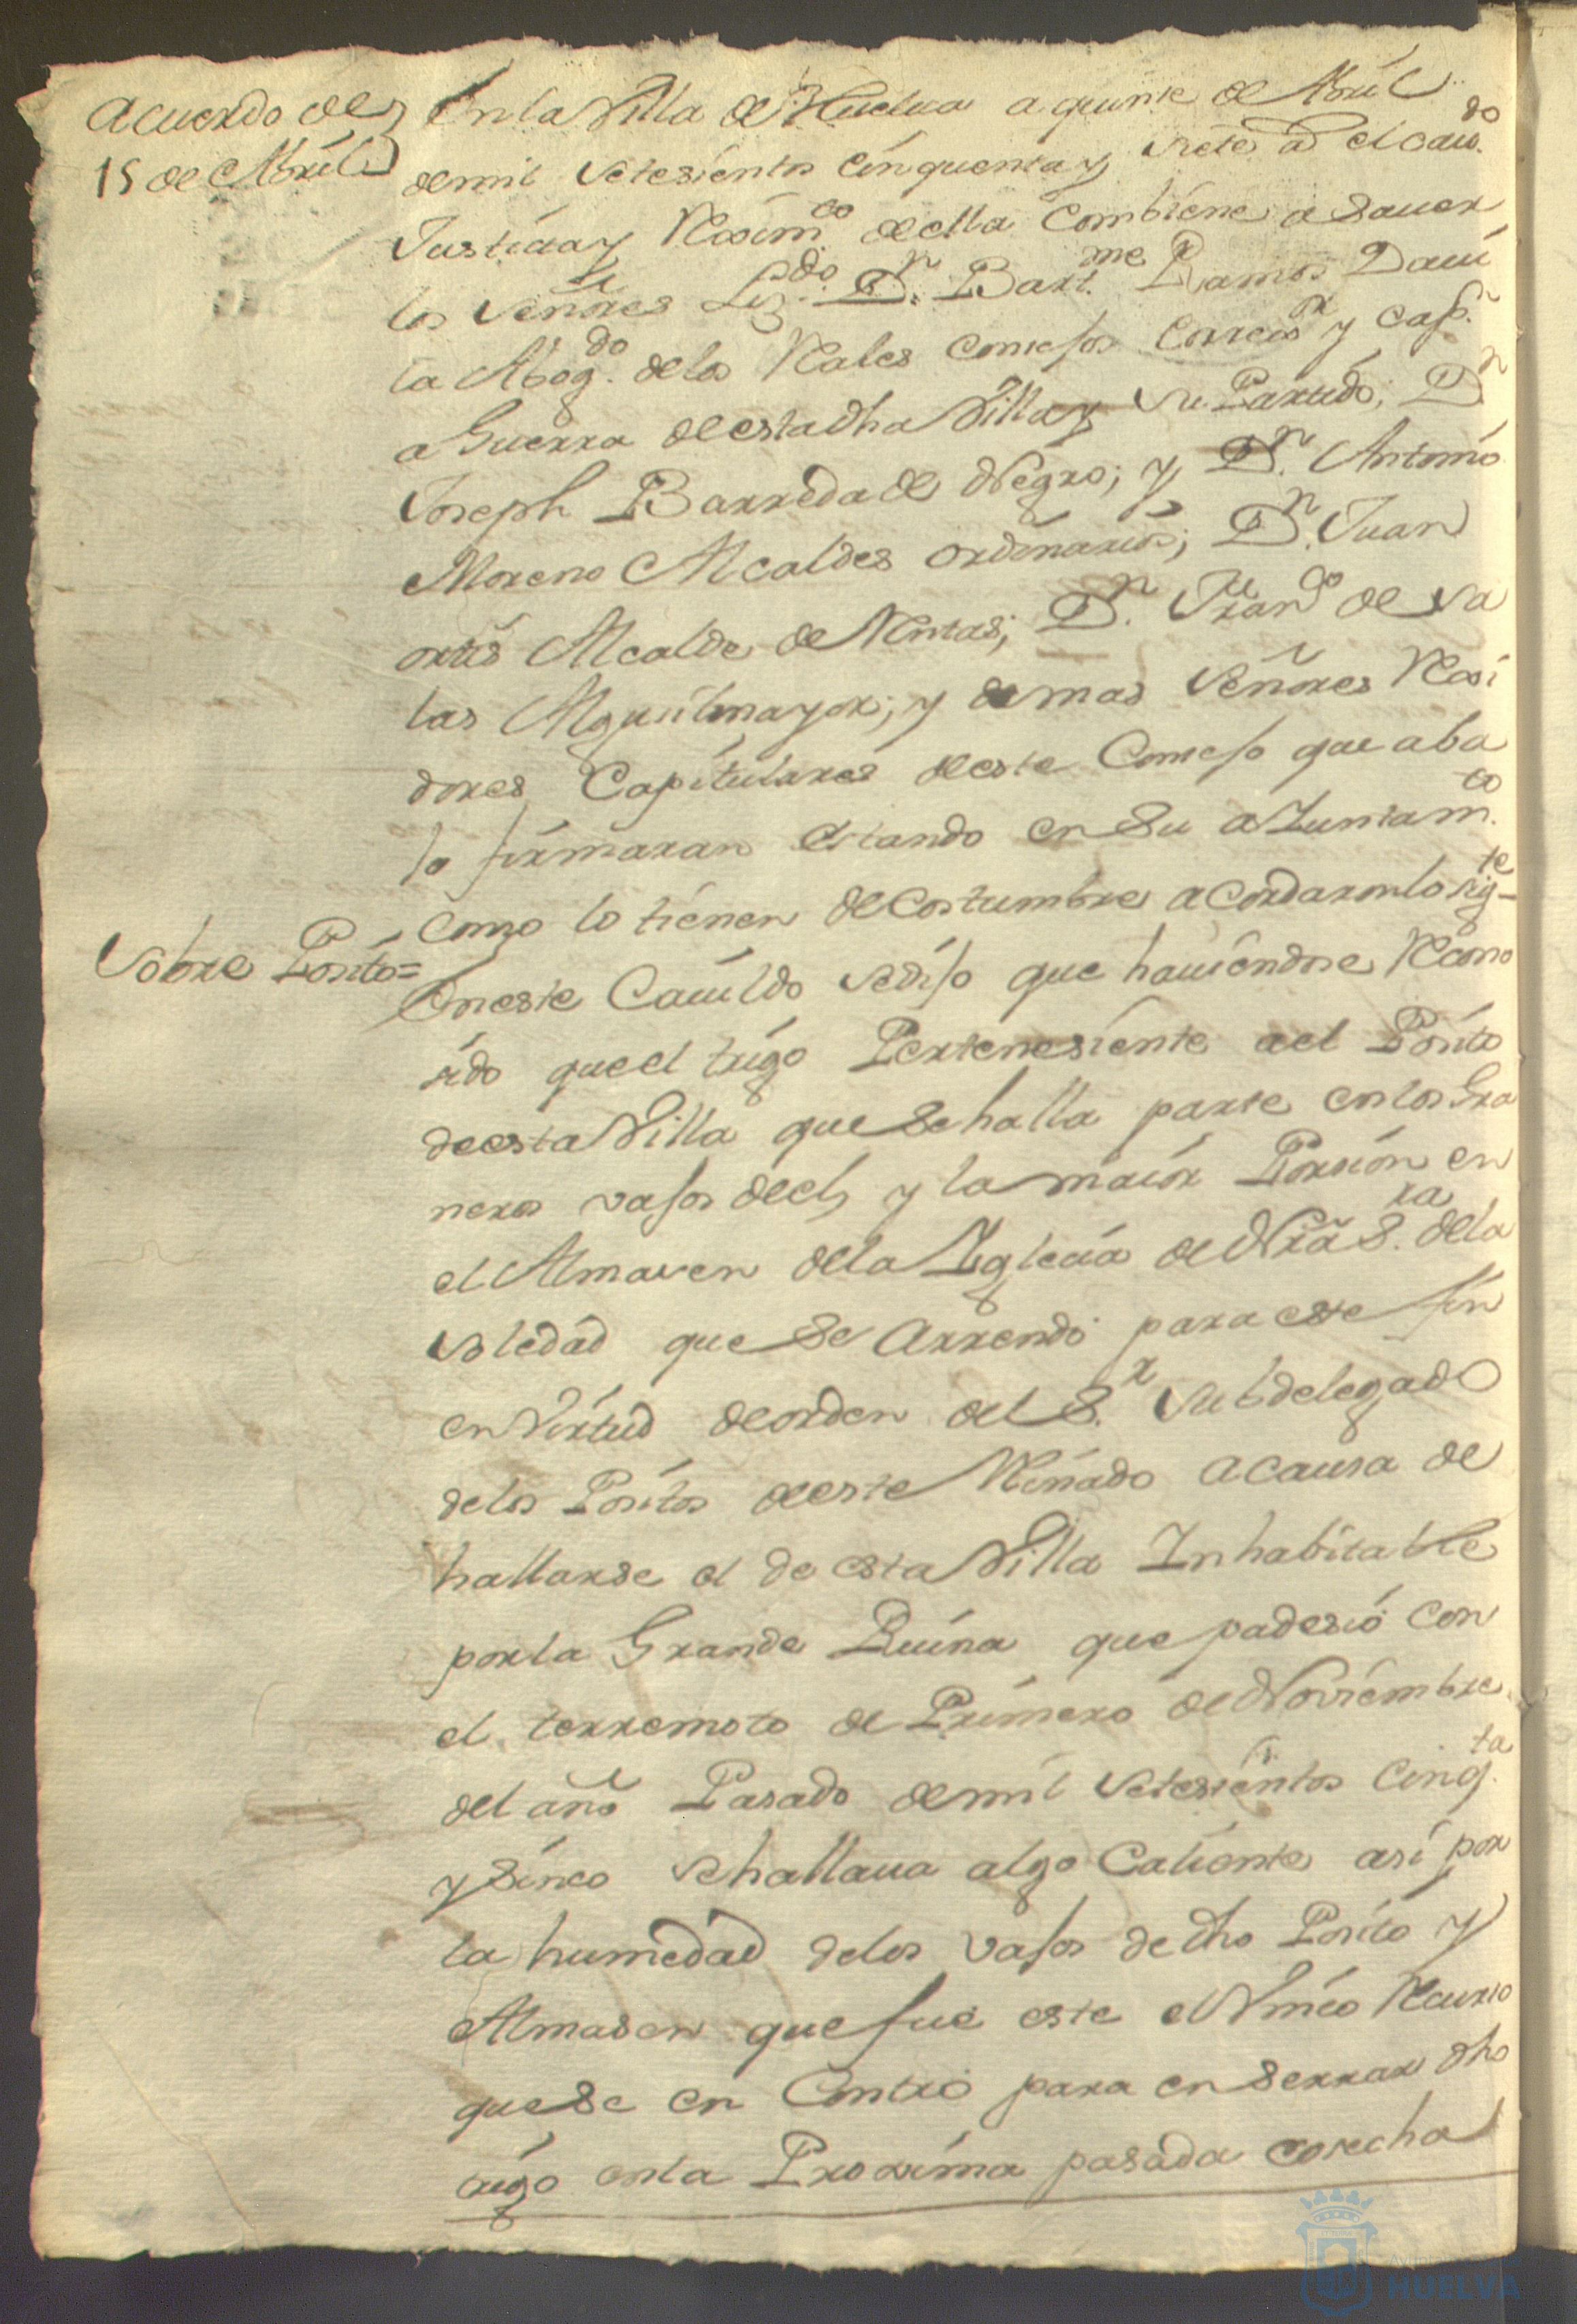 Acuerdo de
15 de Abril
En la Villa de Huelua a quinse de Abril
de mil setesientos cinquenta y siete as. el cauo.do
Justicia y Rexim.to de ella combiene a sauer
los señores Liz.do D.n Bart.me Ramos Daui
la Abog.do de los Reales consejos Correxi.or y cap.n
a Guerra de esta dha Villa y su Partido; D.n
Joseph Barreda de Negro; y D.n Antonio
Moreno Alcaldes ordinarios; D.n Juan
ortis Alcalde de Rentas; D.n Fran.co de Sa
las Alguasil mayor; y demas señores Rexi
dores Capitulares de este Consejo que aba
jo firmaran estando en su aiuntam.to
como lo tienen de costumbre acordaron lo sig.te
Sobre Posito=
En este Cauildo se dijo que hauiendose Recono
sido que el trigo Pertenesiente a el Posito
de esta Villa que se halla parte en los Gra
neros vasos de el, y la maior Porsion en
el Almasen de la Yglecia de Nra S.ra de la
Soledad que se Arrendo para este fin
en Virtud de orden del S.r Subdelegado
de los Positos de este Reinado a causa de
hallarse el de esta Villa Inhabitable
por la Grande Ruina que padesio con
el terremoto de Primero de Noviembre
del año Pasado de mil setesientos cinq.ta
y sinco se hallaua algo caliente asi por
la humedad de los vasos de dho Posito y
Almasen que fue este el Vnico Recurso
que se en Contro para enserrar dho
trigo en la Proxima pasada cosecha
HUELVA